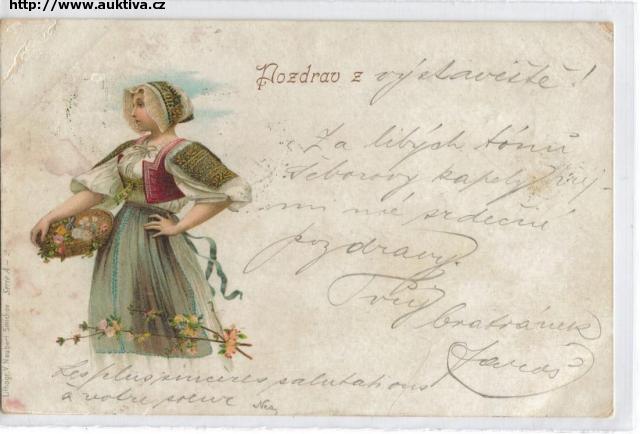 http://www.auktiva.cz
Pozdrav z výstaviště!
Za libých tónů
Šeborovy kapely
mé srdečné
pozdravy.
Tvůj
bratránek
Jaroš
Les plus sinceres salutations
à votre soeur
Lithogr. V. Neubert Smichov Serie A